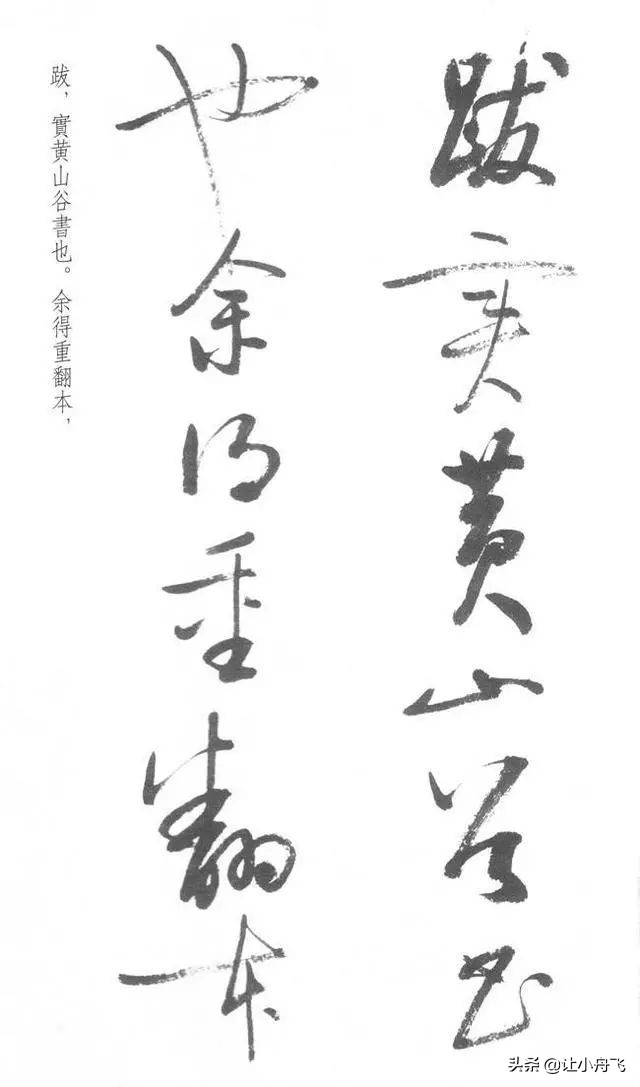 跋實黄山谷書
也余得重翻本
跋，實黄山谷書也。余得重翻本，
头条 @让小舟飞